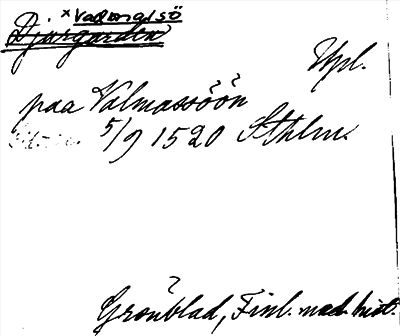 × Valmansö
Djurgården
Upl.
paa Valmassöön
5/9 1520 Sthlm.
Grönblad, Finl. med. hist.